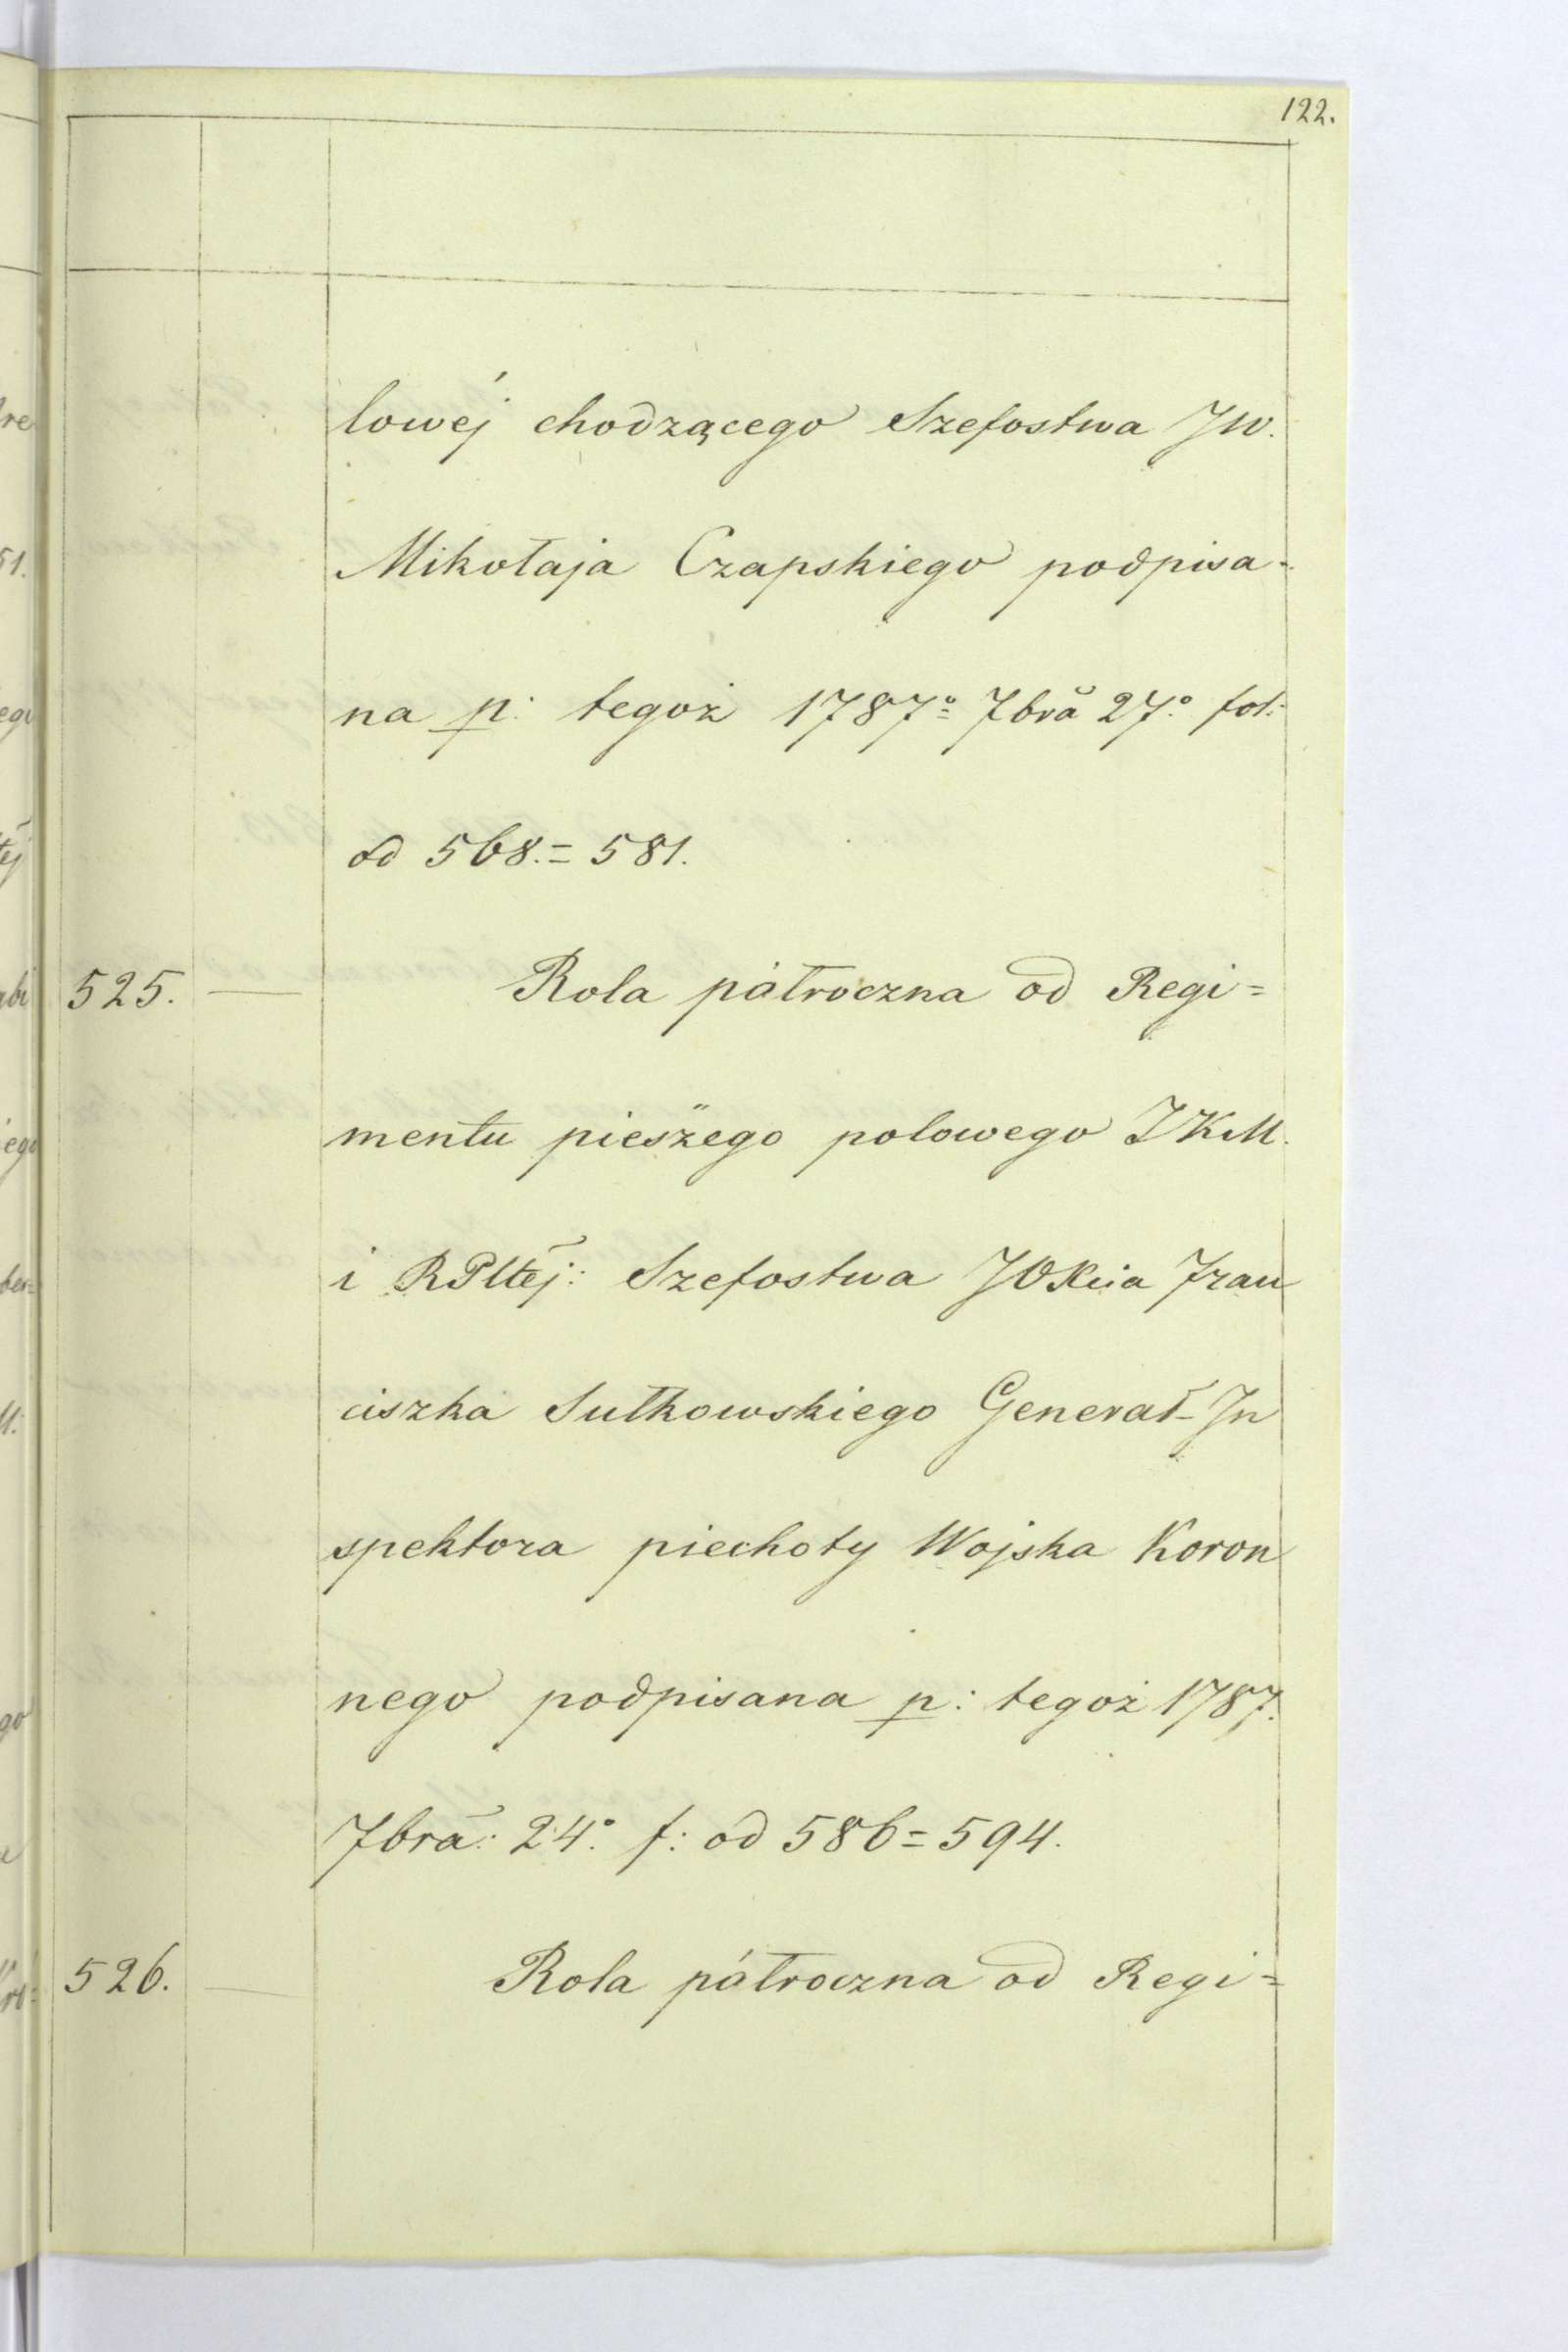 122.
lowéj chodzącego Szefostwa JW.
Mikołaja Czapskiego podpisa-
na p: tegoż 1787o 7bra 27o fol:
od 568.=581.
525. — Rola półroczna od Regi=
mentu pieszego polowego JKM.
i RPltéj: Szefostwa JOXcia Fran
ciszka Sułkowskiego Generał-In
spektora piechoty Wojska Koron
nego podpisana p: tegoż 1787.
7bra: 24o f: od 586=594.
526. — Rola półroczna od Regi=